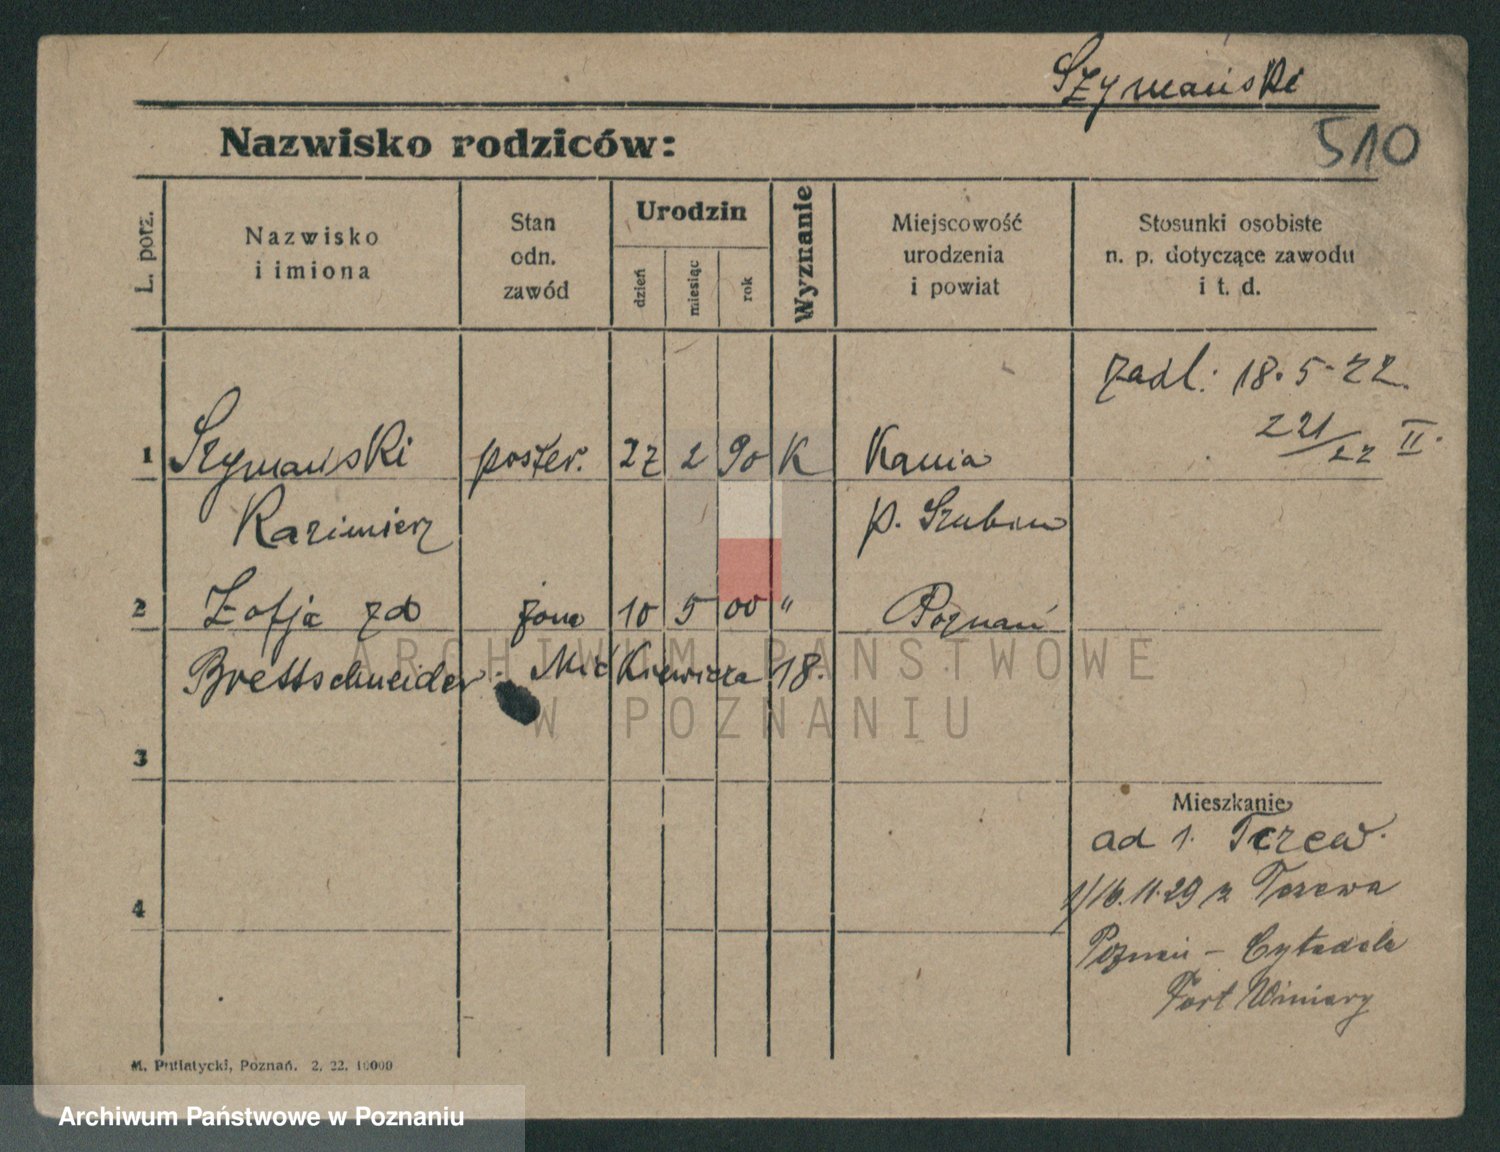 Szymański
510
Nazwisko rodziców:
L. porz.
Nazwisko
i imiona
Stan
odn.
zawód
Urodzin
dzień
miesiąc
rok
Wyznanie
Miejscowość
urodzenia
i powiat
Stosunki osobiste
n. p. dotyczące zawodu
i t. d.
zadl: 18.5.22.
221/22 II.
1 Szymański poster. 27 2 90 K Kania
Kazimierz p. Szubin
2 Zofja zd żona 10 5 00 " Poznań
Brettschneider. Mickiewicza 18.
3
4
Mieszkanie
ad 1. Tczew.
1/16.11.29 z Tczewa
Poznań - Cytadela
Fort Winiary
M. Putiatycki, Poznań. 2. 22. 10000
ARCHIWUM PAŃSTWOWE
W POZNANIU
Archiwum Państwowe w Poznaniu